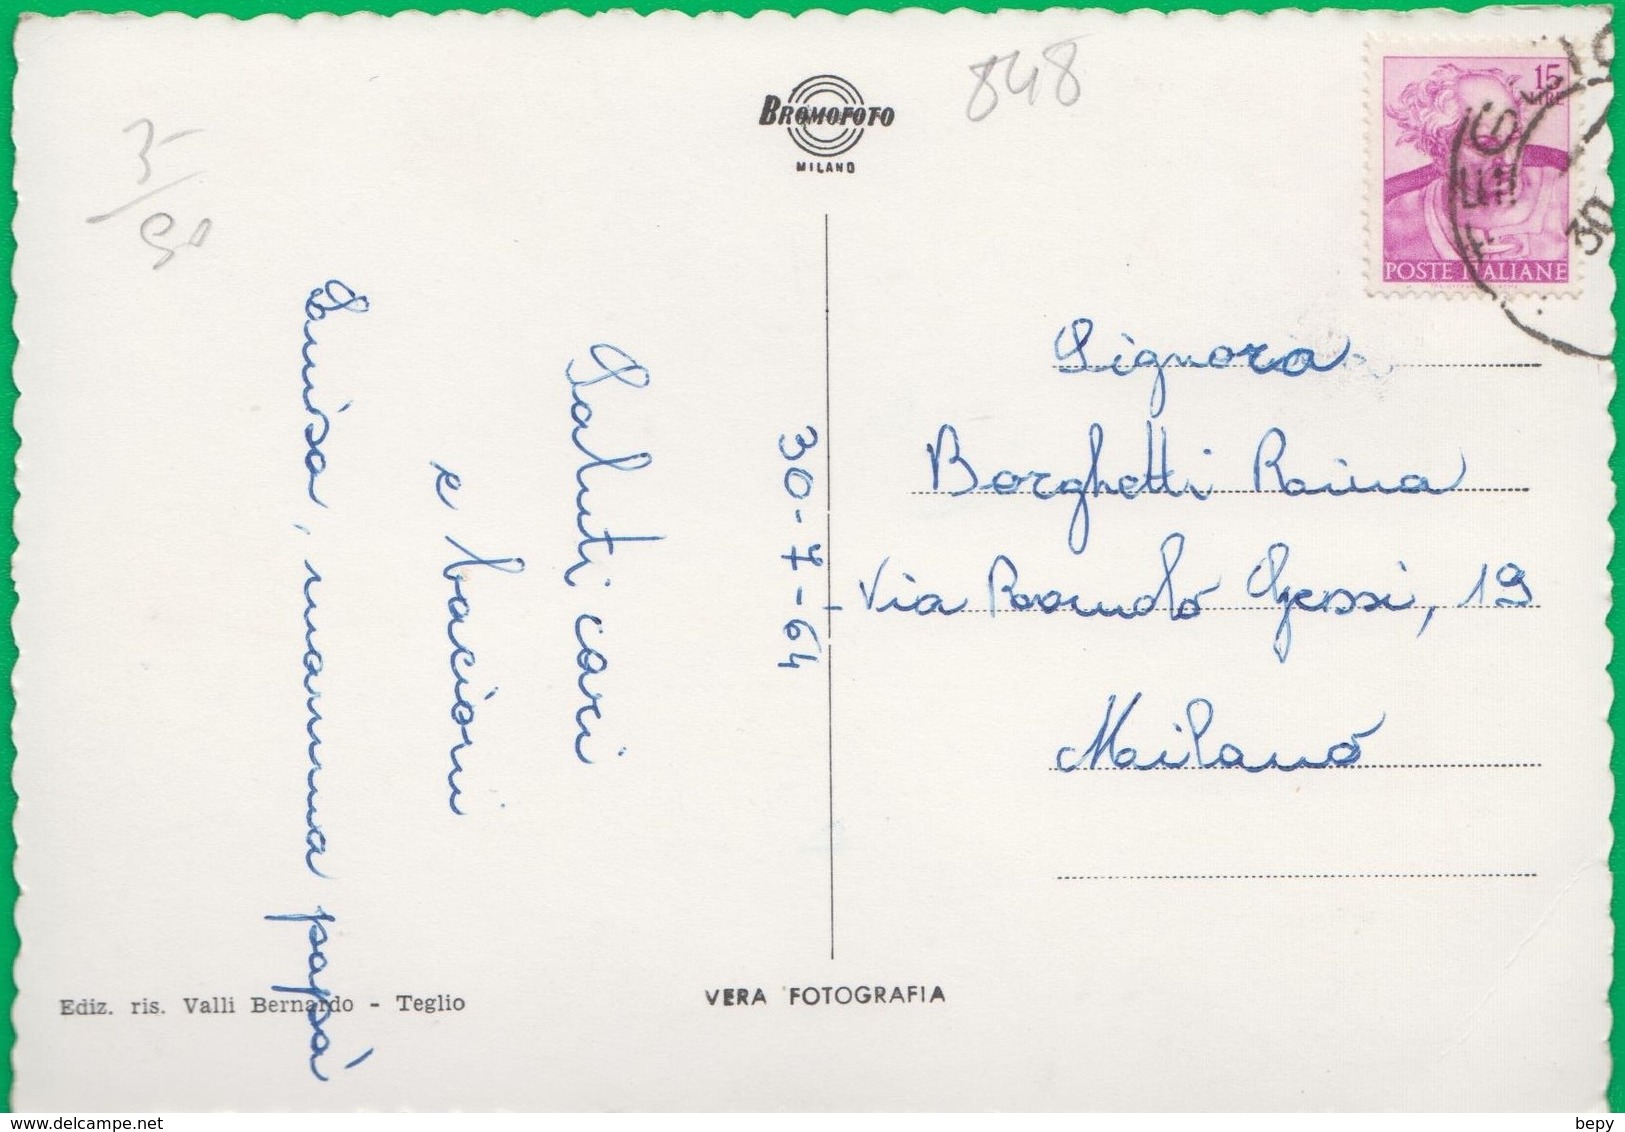 BROMOFOTO
MILANO
848
15
LIRE
POSTE ITALIANE
30
30-7-64
Saluti cari
e bacioni
Luisa, mamma papà
Signora
Borghetti Raina
Via Romolo Gessi, 19
Milano
Ediz. ris. Valli Bernardo - Teglio
VERA FOTOGRAFIA
delcampe.net
bepy